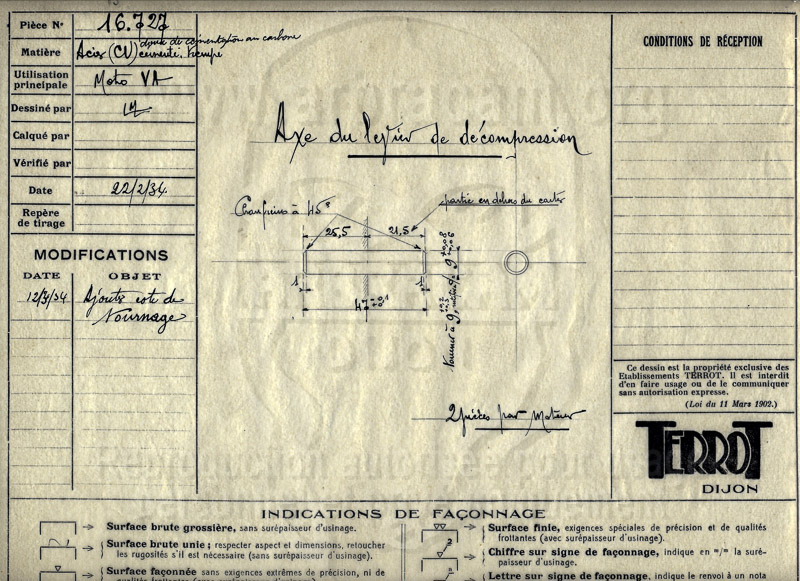 Pièce Nº 16.727
Matière Acier (CV) doux de cémentation au carbone
cémenté. trempé
Utilisation principale Moto VA
Dessiné par
Calqué par
Vérifié par
Date 22/2/34
Repère de tirage
MODIFICATIONS
DATE OBJET
12/3/34 Ajouté cote de
Tournage
Axe du levier de décompression
Chanfreins à 45°
partie en dehors du carter
25,5 21,5
1 1
47
Tourner à 9 rectifier 9
2 pièces par moteur
CONDITIONS DE RÉCEPTION
Ce dessin est la propriété exclusive des
Etablissements TERROT. Il est interdit
d'en faire usage ou de le communiquer
sans autorisation expresse.
(Loi du 11 Mars 1902.)
TERROT
DIJON
INDICATIONS DE FAÇONNAGE
Surface brute grossière, sans surépaisseur d'usinage.
Surface brute unie; respecter aspect et dimensions, retoucher
les rugosités s'il est nécessaire (sans surépaisseur d'usinage).
Surface façonnée sans exigences extrêmes de précision, ni de
qualités frottantes
Surface finie, exigences spéciales de précision et de qualités
frottantes (avec surépaisseur d'usinage).
Chiffre sur signe de façonnage, indique en m/m la suré-
paisseur d'usinage.
Lettre sur signe de façonnage, indique le renvoi à un nota